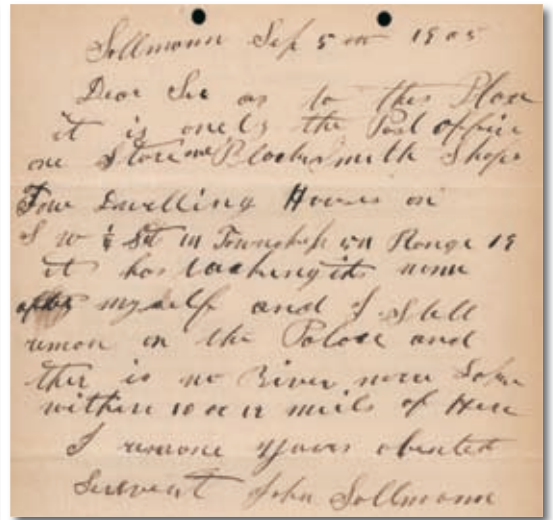 Sollmann Sep 5 1905
Dear Sir as to this Place
it is onely the Post office
one Store one Blacksmith Shop
Four Dwelling Houses on
S W ¼ Township Range 19
it has its name
after myself and I Still
remon on the Palace and
ther is no River nore
within 10 or 12 mils of Here
I remone yours
Servent John Sollmann